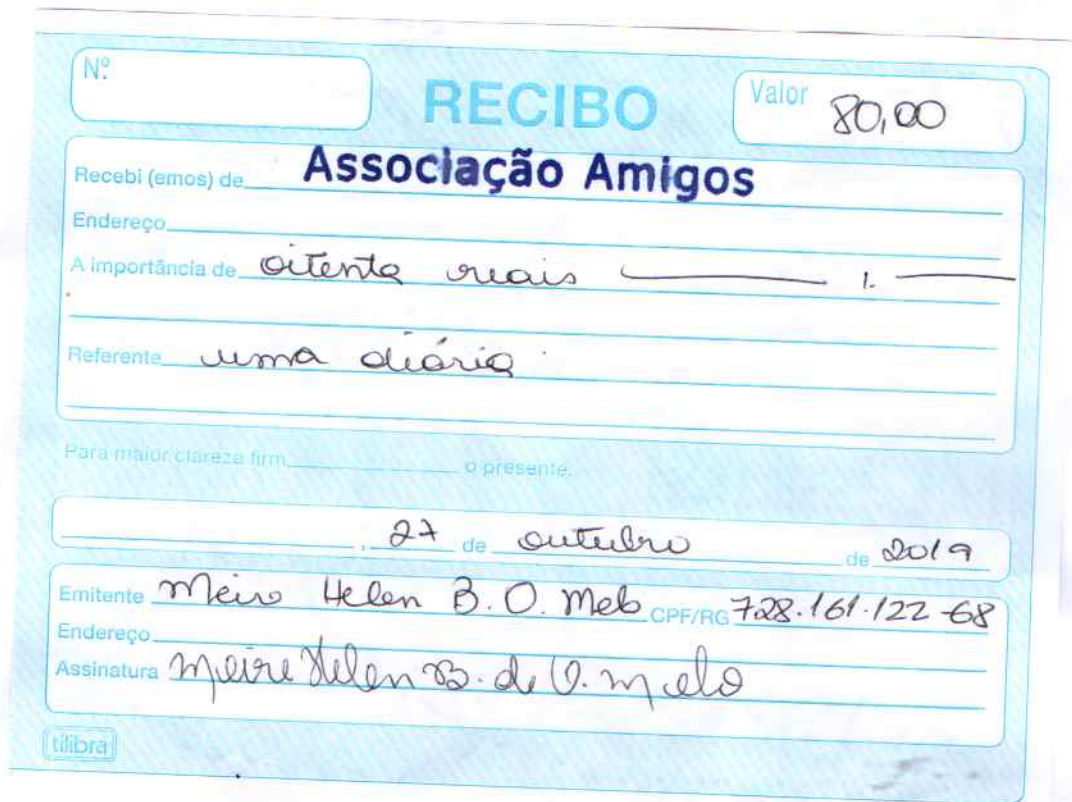 Nº
RECIBO
Valor 80,00
Recebi (emos) de Associação Amigos
Endereço
A importância de oitenta reais
Referente uma diária
Para maior clareza firm o presente.
, 27 de outubro de 2019
Emitente Meire Helen B. O. Melo CPF/RG 728.161.122-68
Endereço
Assinatura Meire Helen B. de O. Melo
tilibra